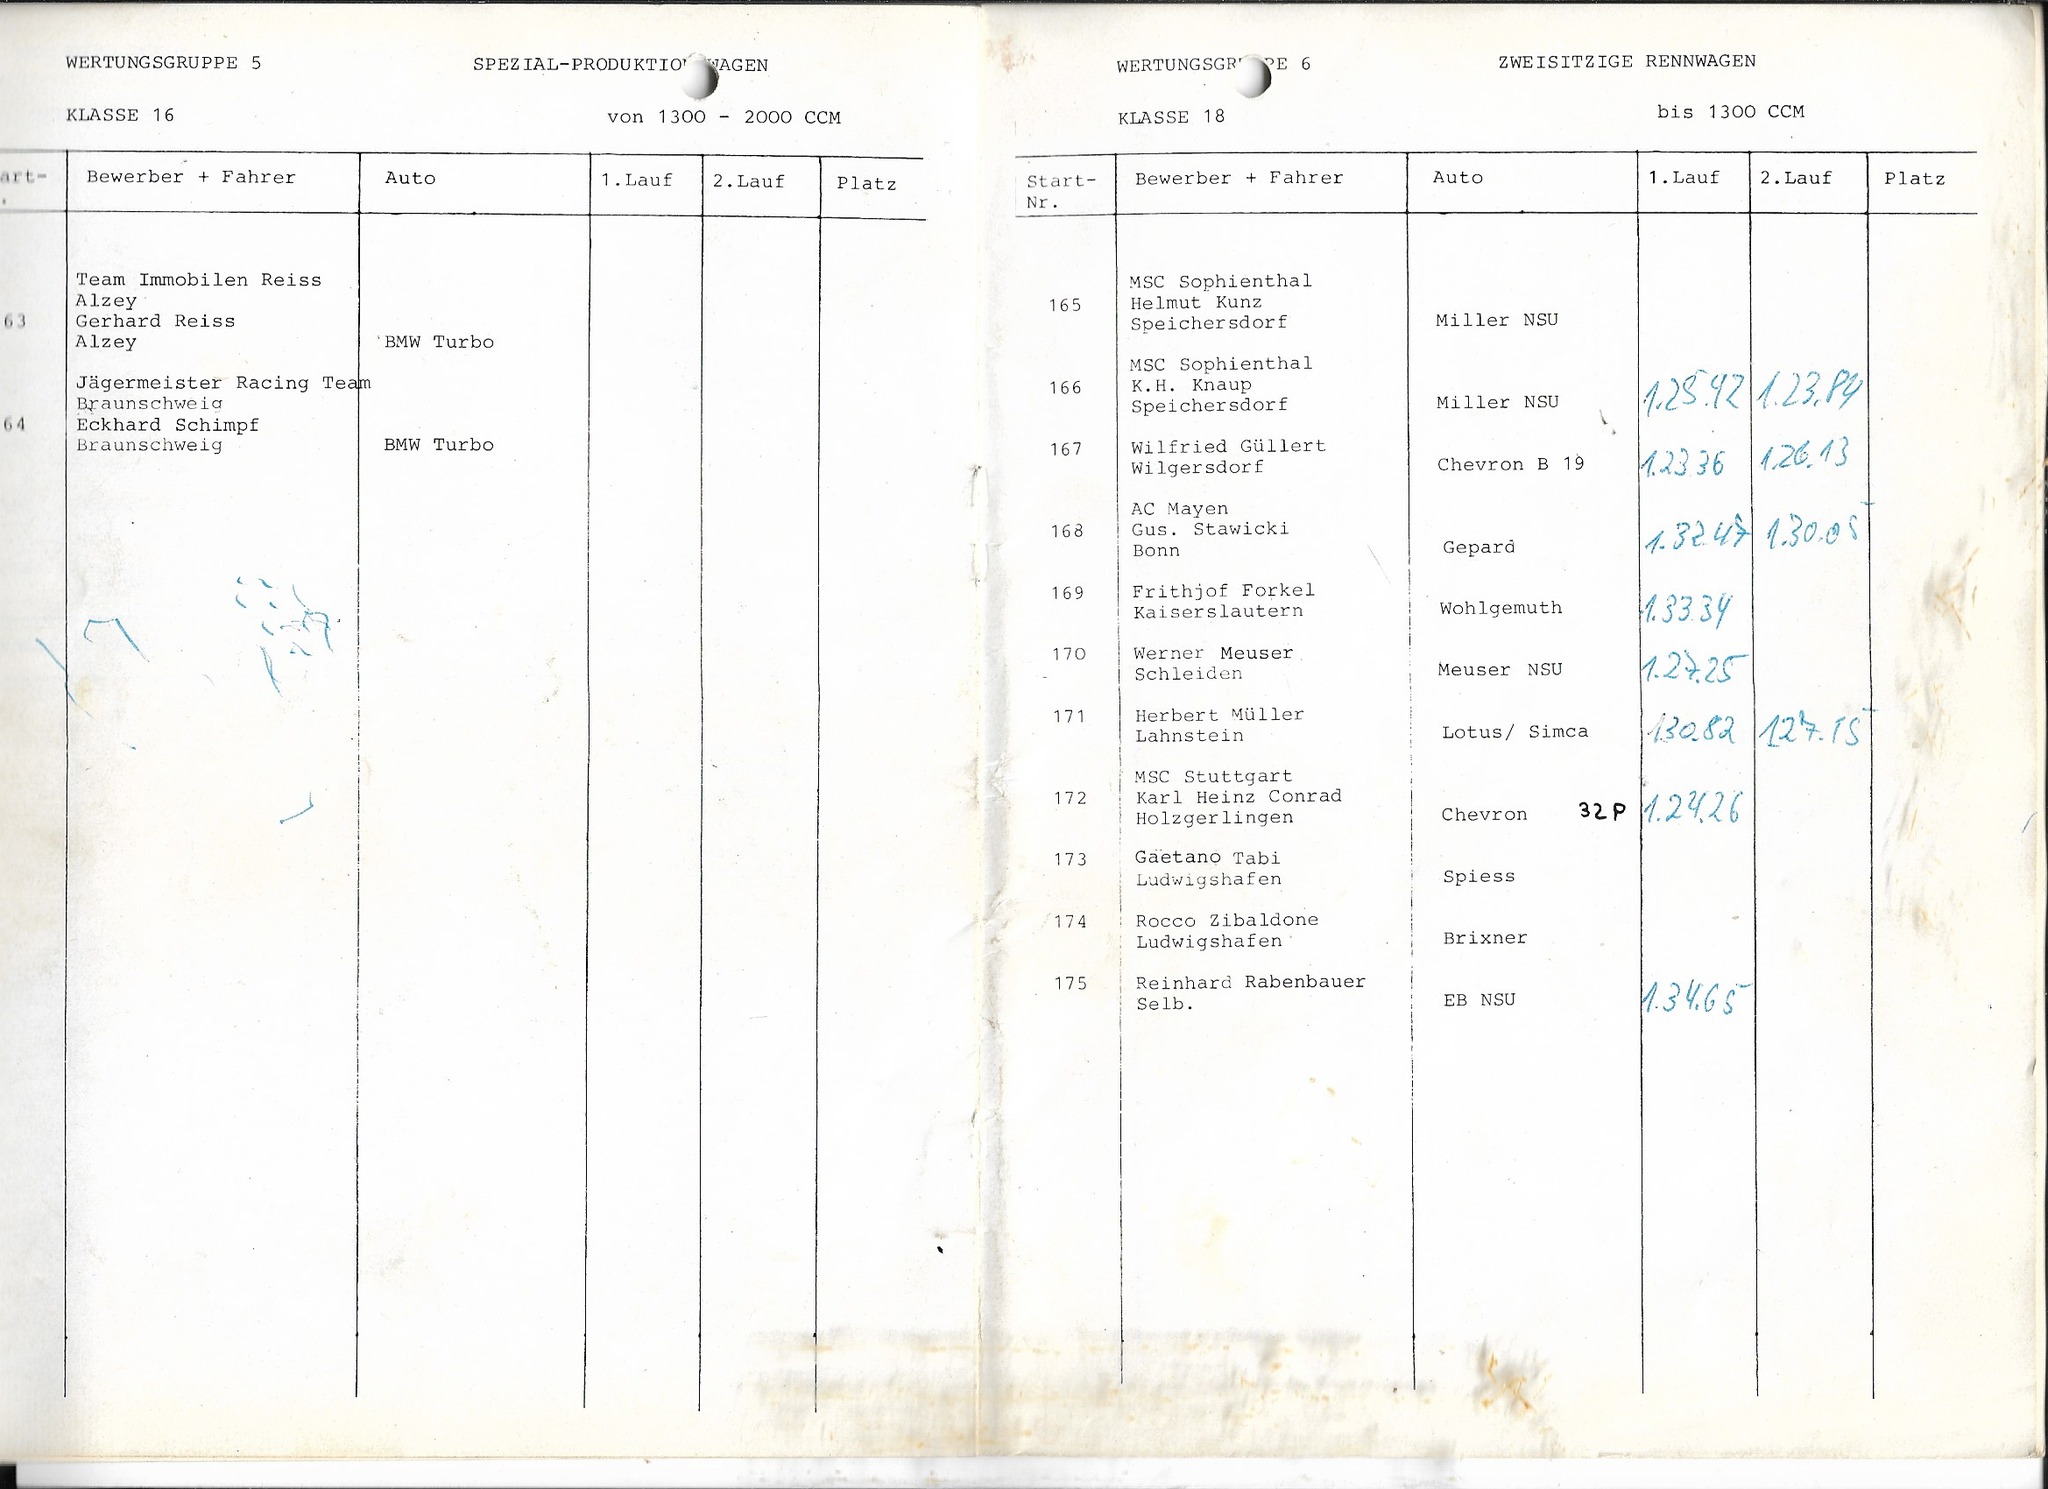 WERTUNGSGRUPPE 5 SPEZIAL-PRODUKTIO WAGEN
KLASSE 16 von 1300 - 2000 CCM
art- Bewerber + Fahrer Auto 1.Lauf 2.Lauf Platz
.
Team Immobilen Reiss
Alzey
63 Gerhard Reiss
Alzey BMW Turbo
Jägermeister Racing Team
Braunschweig
64 Eckhard Schimpf
Braunschweig BMW Turbo
WERTUNGSGR PE 6 ZWEISITZIGE RENNWAGEN
KLASSE 18 bis 1300 CCM
Start- Bewerber + Fahrer Auto 1.Lauf 2.Lauf Platz
Nr.
MSC Sophienthal
165 Helmut Kunz
Speichersdorf Miller NSU
MSC Sophienthal
166 K.H. Knaup
Speichersdorf Miller NSU 1.25.42 1.23.84
167 Wilfried Güllert
Wilgersdorf Chevron B 19 1.23 36 1.26.13
AC Mayen
168 Gus. Stawicki
Bonn Gepard 1.32.47 1.30.05
169 Frithjof Forkel
Kaiserslautern Wohlgemuth 1.33 34
170 Werner Meuser
Schleiden Meuser NSU 1.27.25
171 Herbert Müller
Lahnstein Lotus/ Simca 1.30.82 1.27.15
MSC Stuttgart
172 Karl Heinz Conrad
Holzgerlingen Chevron 32P 1.24.26
173 Gaetano Tabi
Ludwigshafen Spiess
174 Rocco Zibaldone
Ludwigshafen Brixner
175 Reinhard Rabenbauer
Selb. EB NSU 1.34.65